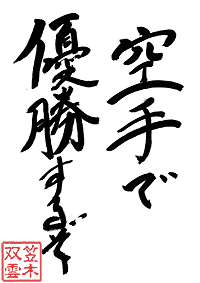 空手で
優勝するぞ
笠木
双雲